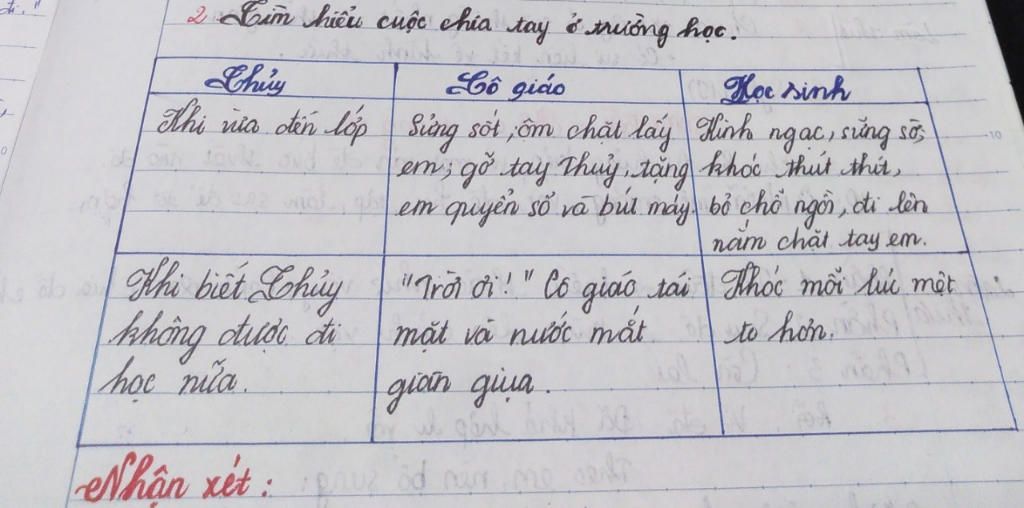 2. Tìm hiểu cuộc chia tay ở trường học.
Thủy
Cô giáo
Học sinh
Khi vừa đến lớp
Sửng sốt, ôm chặt lấy
em; gỡ tay Thuỷ, tặng
em quyển sổ và bút máy.
Kinh ngạc, sững sờ;
khóc thút thít,
bỏ chỗ ngồi, đi lên
nắm chặt tay em.
Khi biết Thủy
không được đi
học nữa.
"Trời ơi!" Cô giáo tái
mặt và nước mắt
giàn giụa.
Khóc mỗi lúc một
to hơn.
Nhận xét: